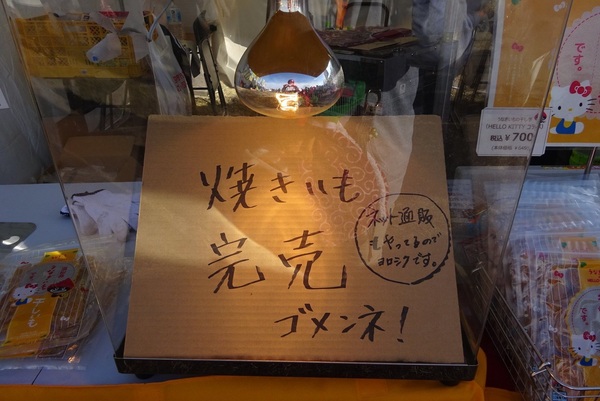 焼きいも
完売
ゴメンネ!
ネット通販
もやってるので
ヨロシクです。
です。
(HELLO KITTY
税込 ¥700